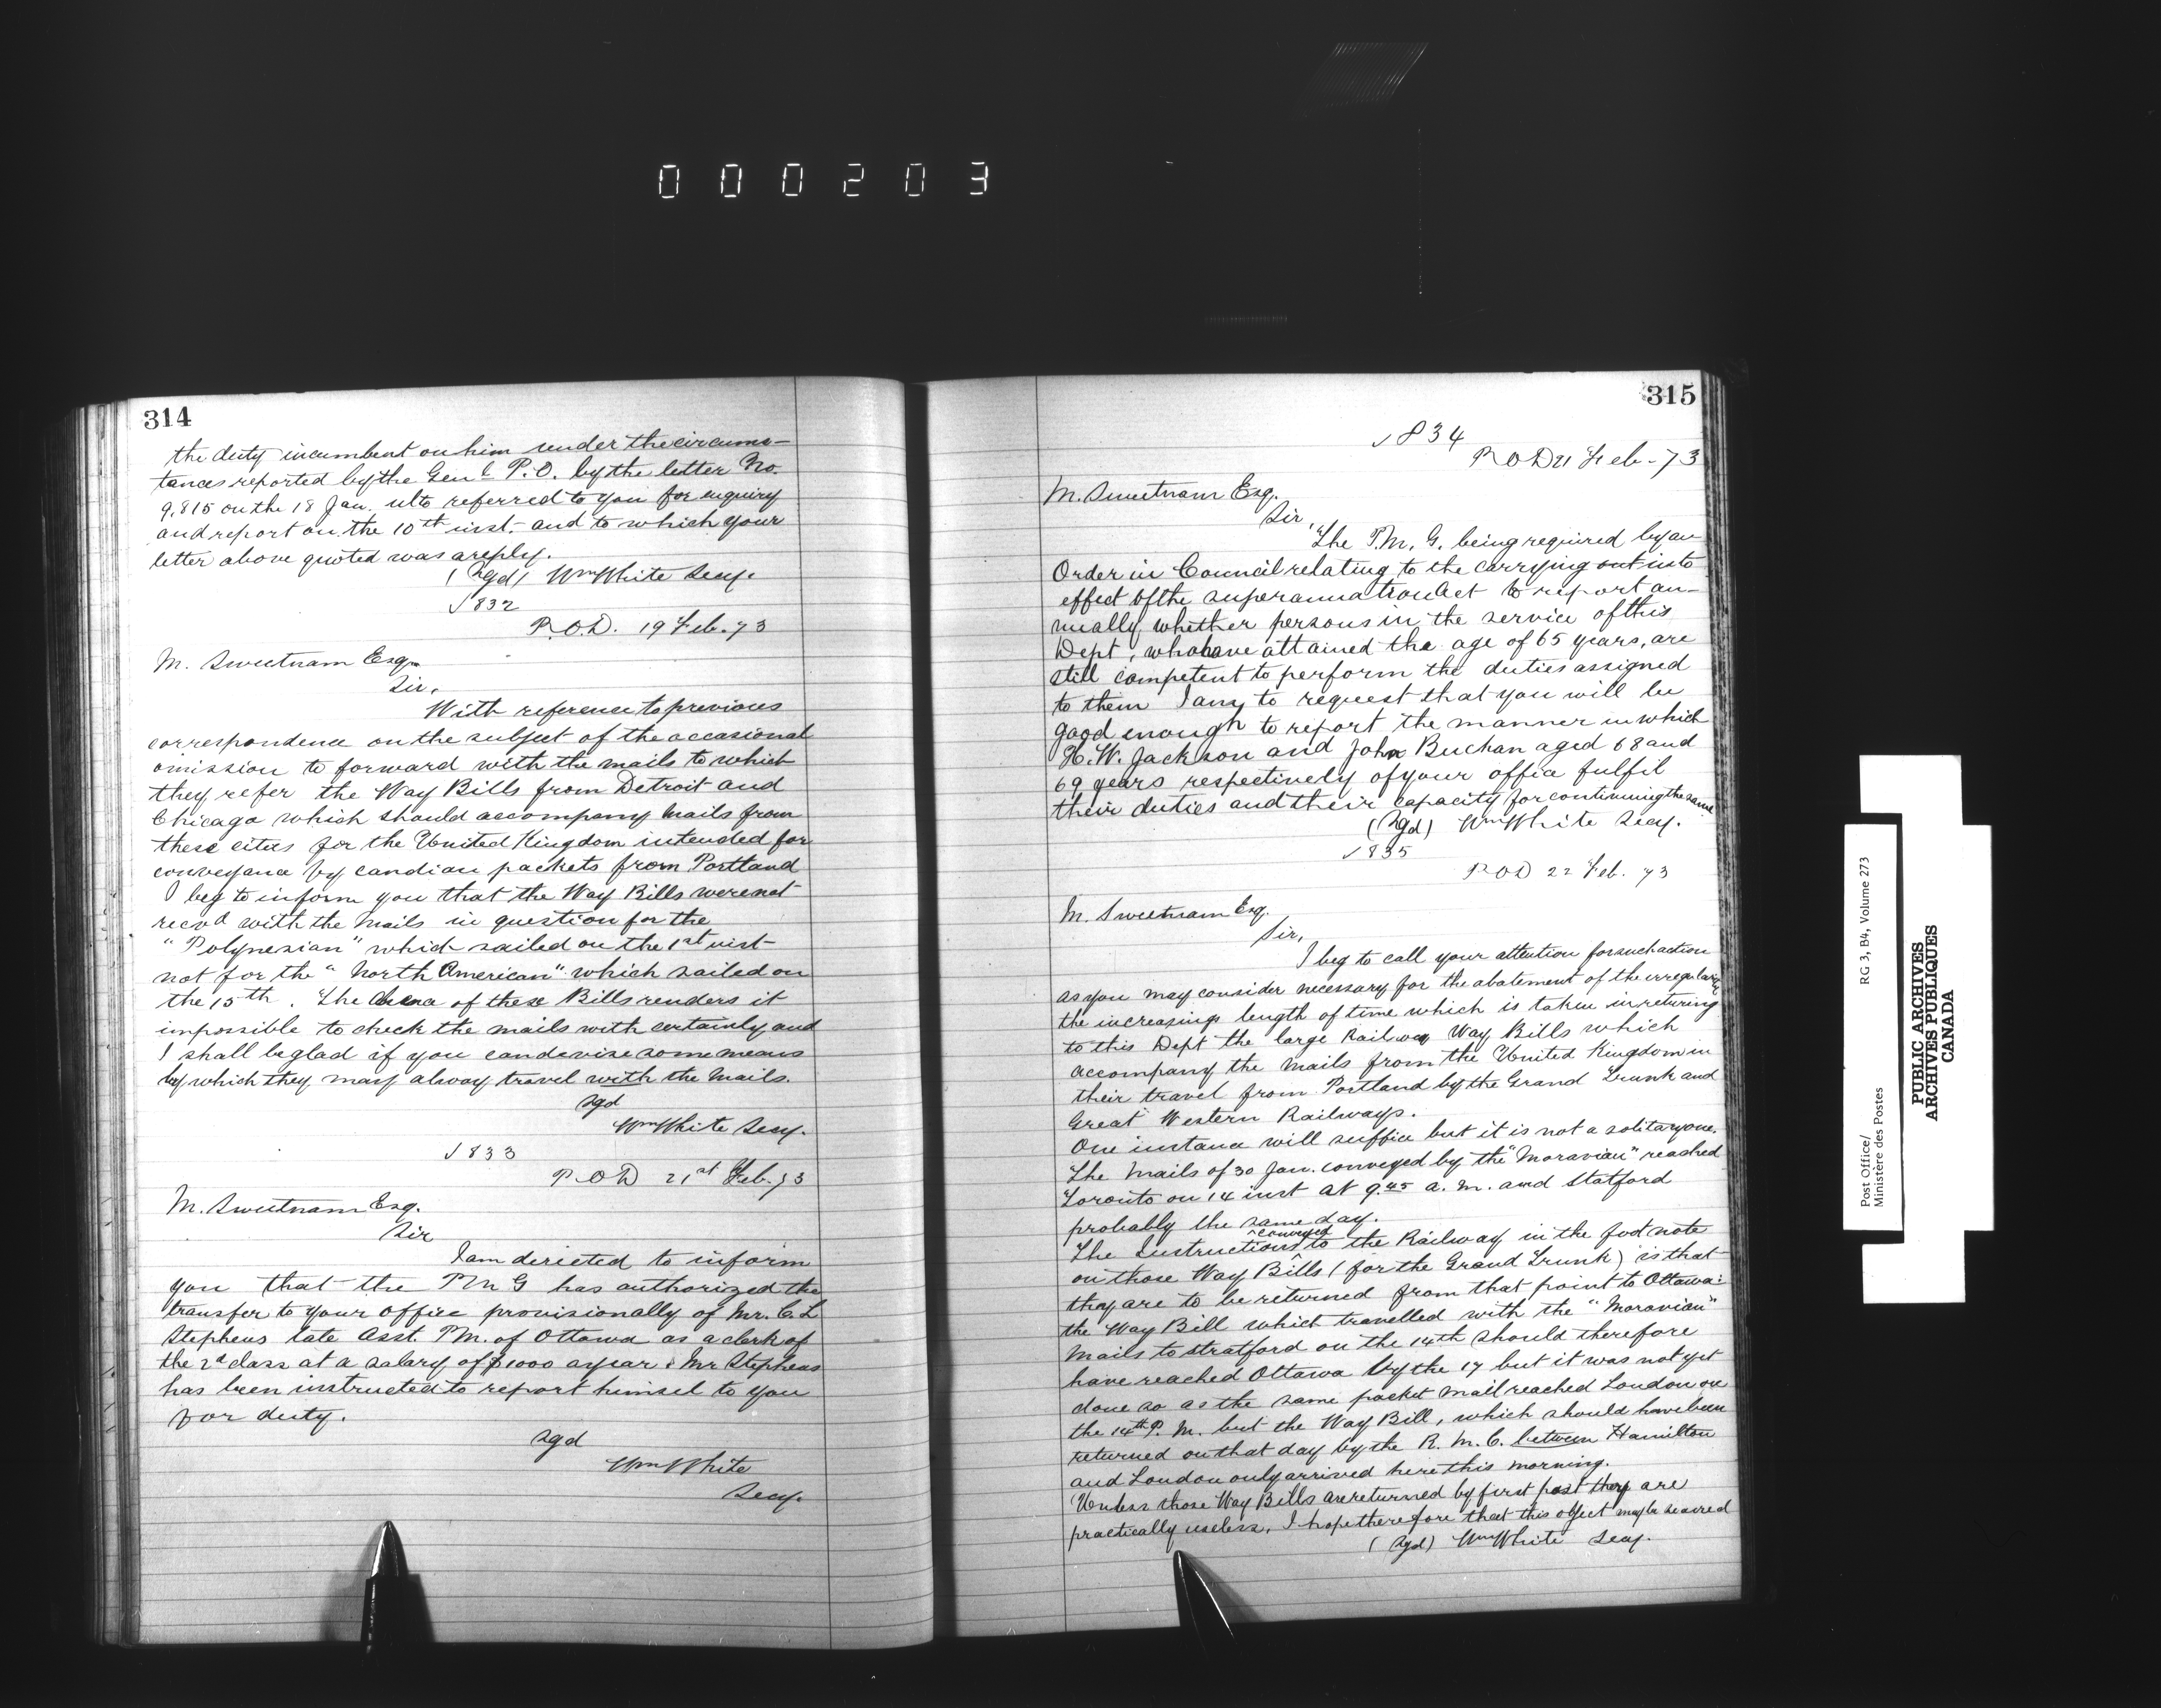 000203
314
the duty incumbent on him under the circums-
tances reported by the Genl P.O. by the letter No.
9,815 on the 18 Jan. ulto referred to you for enquiry
and report on the 10th inst. and to which your
letter above quoted was a reply.
(Sgd) Wm White Secy.
√832
P.O.D. 19 Feb. 73
M. Sweetnam Esq.
Sir,
With reference to previous
correspondence on the subject of the occasional
omission to forward with the mails to which
they refer the Way Bills from Detroit and
Chicago which should accompany Mails from
these cities for the United Kingdom intended for
conveyance by candian packets from Portland
I beg to inform you that the Way Bills were not
recvd with the Mails in question for the
"Polynesian" which sailed on the 1st inst
not for the "North American" which sailed on
the 15th. The of these Bills renders it
impossible to check the mails with certainly and
I shall be glad if you can devise some means
by which they may alway travel with the Mails.
Sgd
Wm White Secy.
√833
P.O.D 21st Feb. 73
M. Sweetnam Esq.
Sir
I am directed to inform
you that the PMG has authorized the
transfer to your office provisionally of Mr. C. L
Stephens late Asst. PM. of Ottawa as a clerk of
the 2d class at a salary of $1000 a year & Mr Stephens
has been instructed to report himsel to you
for duty.
Sgd
Wm White
Secy.
315
√834
P.O.D 21 Feb. 73
M. Sweetnam Esq.
Sir,
The P.M.G. being required by an
Order in Council relating to the carrying out into
effect of the superannuation Act to report an-
nually whether persons in the service of this
Dept, who have attained the age of 65 years, are
still competent to perform the duties assigned
to them I am, to request that you will be
good enough to report the manner in which
H. W. Jackson and John Buchan aged 68 and
69 years respectively of your office fulfil
their duties and their capacity for continuing the same
(Sgd) Wm White Secy.
√835
P.O.D 22 Feb. 73
M. Sweetnam Esq.
Sir,
I beg to call your attention for such action
as you may consider necessary for the abatement of the irregularity
the increasing length of time which is taken in returning
to this Dept the large Railway Way Bills which
accompany the Mails from the United Kingdom in
their travel from Portland by the Grand Trunk and
Great Western Railways.
One instance will suffice but it is not a solitary one.
The Mails of 30 Jan. conveyed by the "Moravian" reached
Toronto on 14 inst at 9.45 a.m. and Statford
probably the same day.
The Instructions conveyed to the Railway in the foot note
on those Way Bills (for the Grand Trunk) is that
they are to be returned from that point to Ottawa:
the Way Bill which travelled with the "Moravian"
Mails to Stratford on the 14th should therefore
have reached Ottawa by the 17 but it was not yet
done so as the same packet mail reached London on
the 14th P.M. but the Way Bill, which should have been
returned on that day by the R.M.C. between Hamilton
and London only arrived here this morning.
Unless those Way Bills are returned by first post they are
practically useless, I hope therefore that this object may be secured
(Sgd) Wm White Secy.
Post Office/
Ministère des Postes
RG 3, B4, Volume 273
PUBLIC ARCHIVES
ARCHIVES PUBLIQUES
CANADA